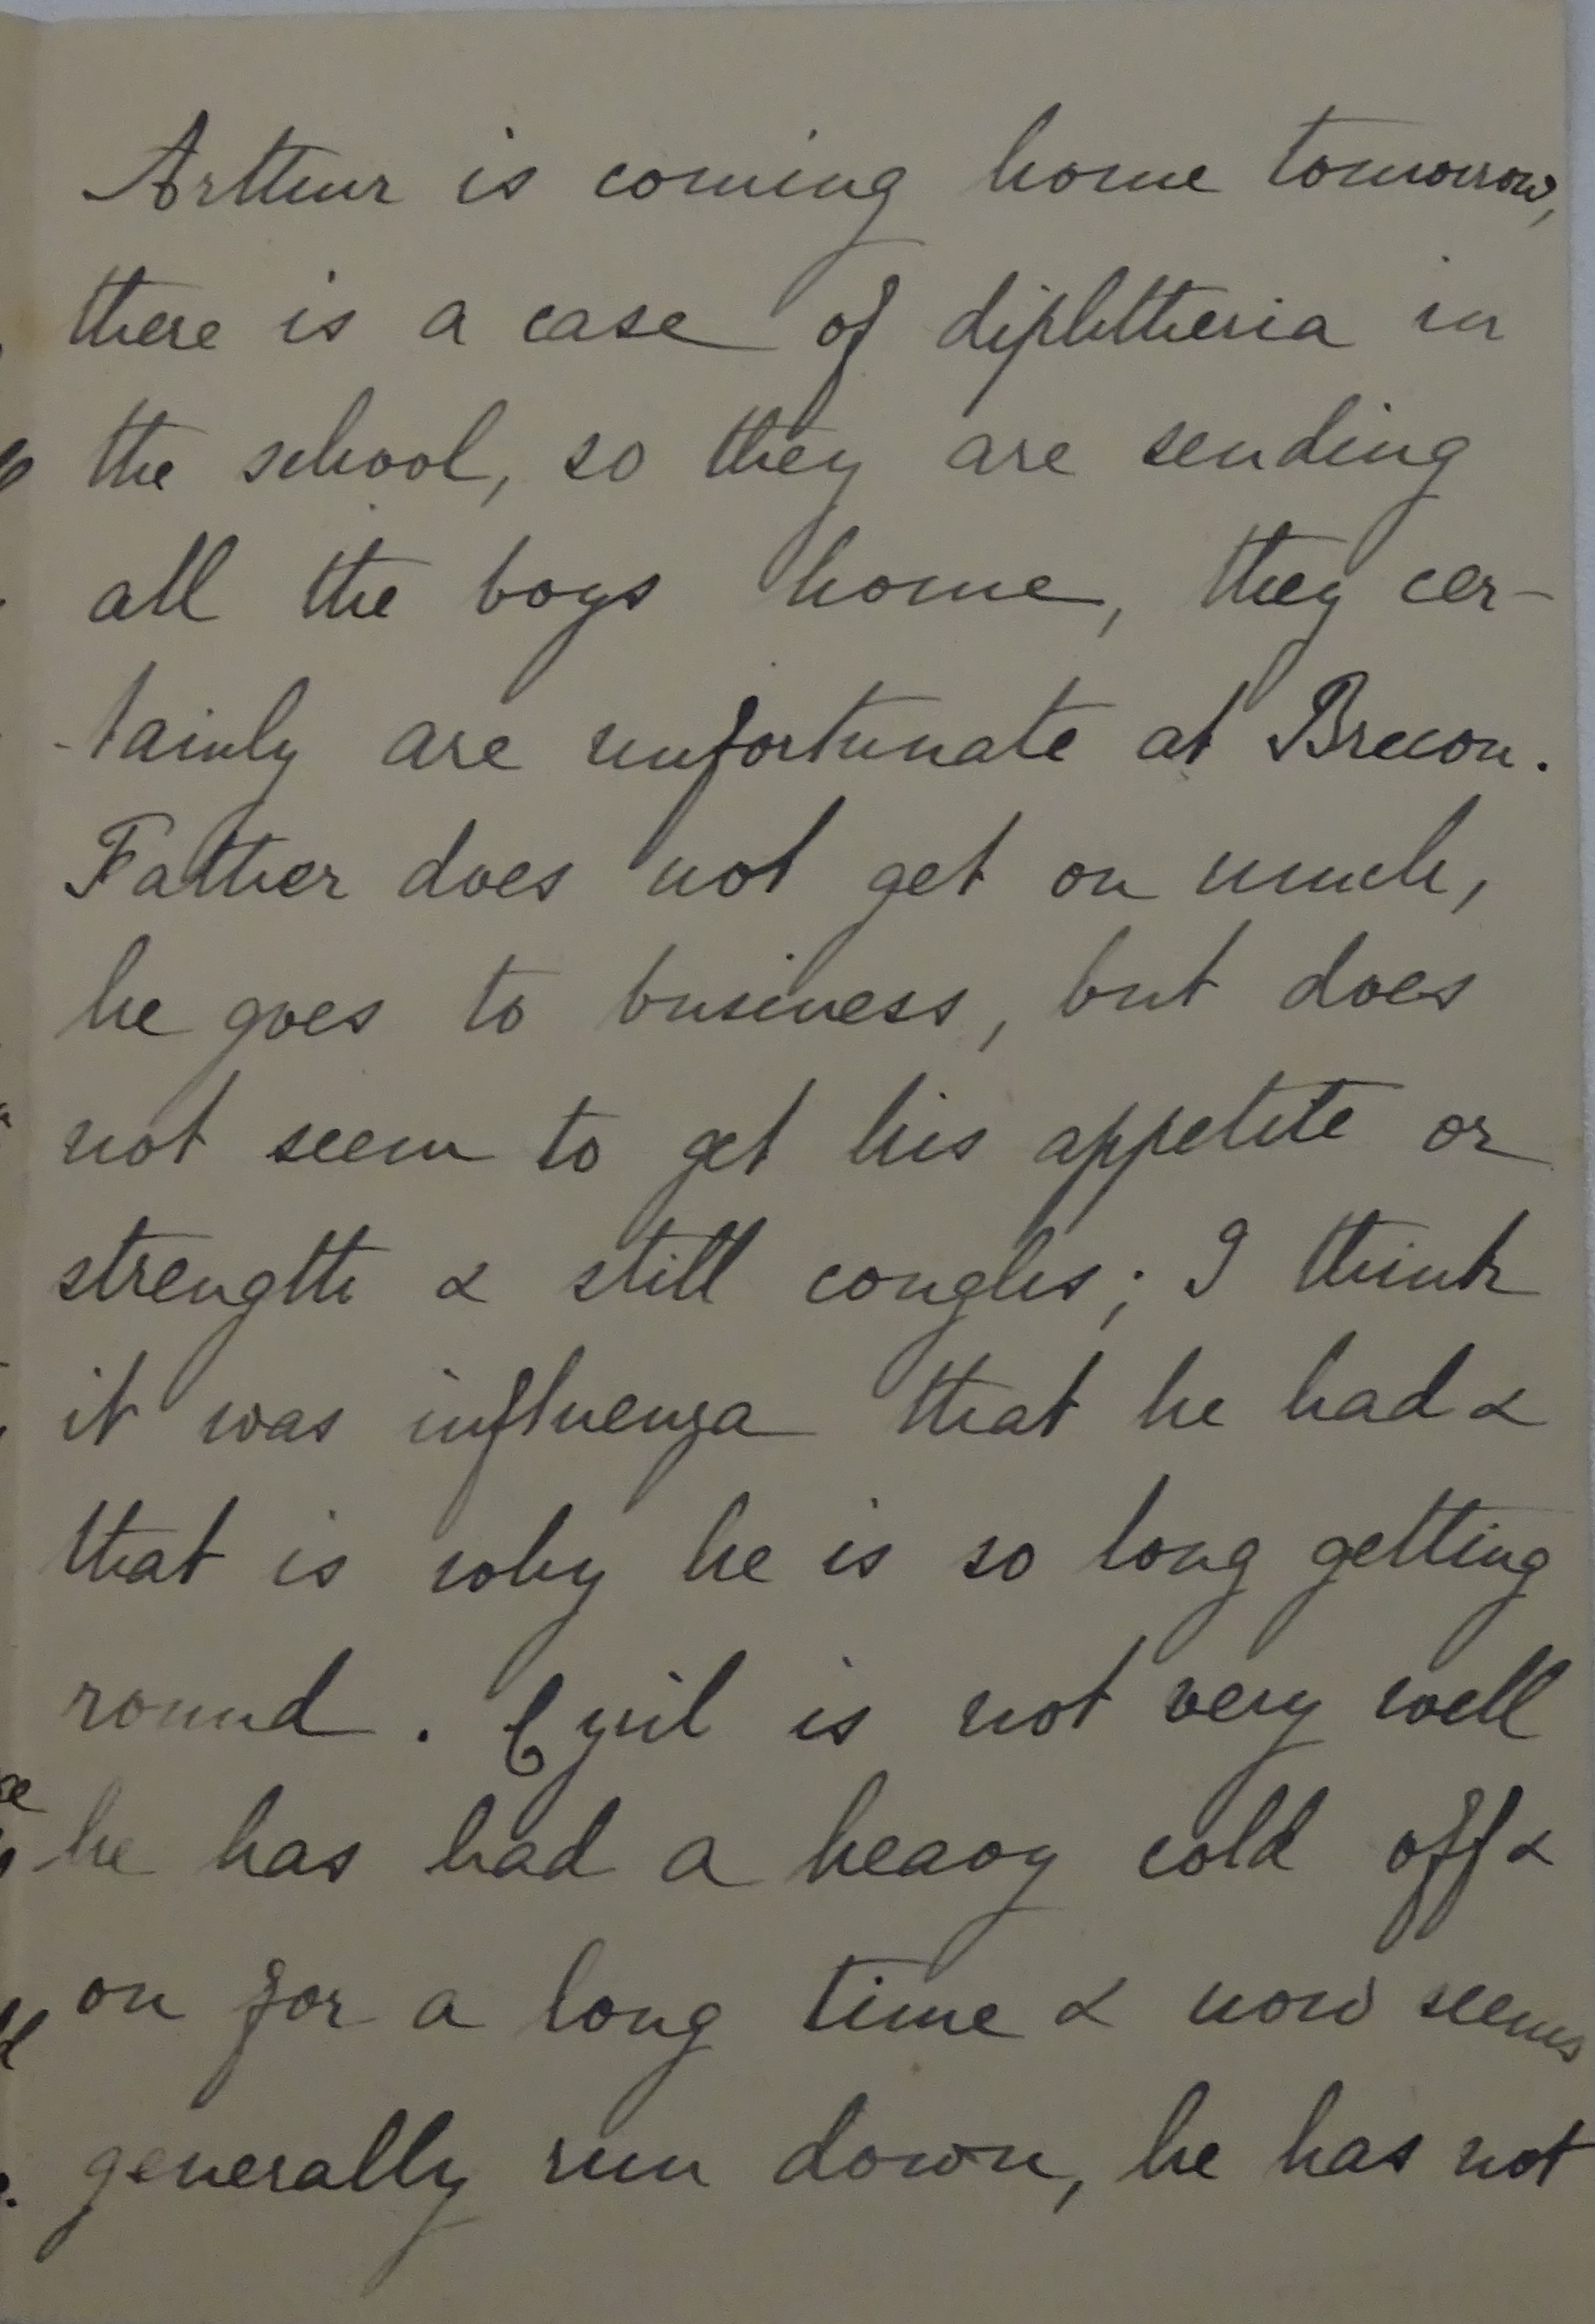 Arthur is coming home tomorrow,
there is a case of diphtheria in
the school, so they are sending
all the boys home, they cer-
-tainly are unfortunate at Brecon.
Father does not get on much,
he goes to business, but does
not seem to get his appetite or
strength & still coughs; I think
it was influenza that he had &
that is why he is so long getting
round. Cyril is not very well
he has had a heavy cold off &
on for a long time & now seems
generally run down, he has not